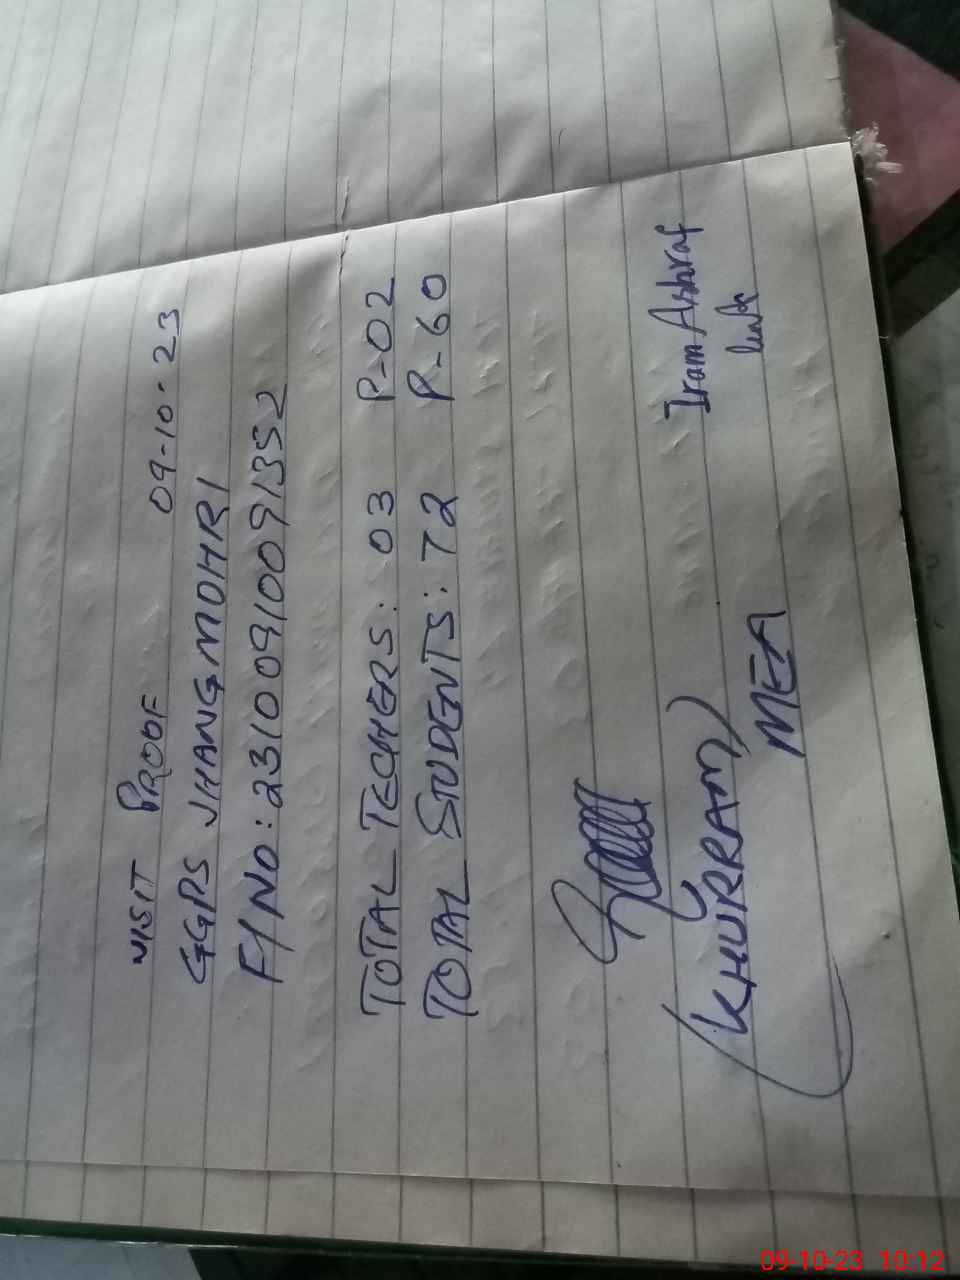 VISIT PROOF 09-10-23
GGPS JHANGMOHRI
F/NO: 23100910091352
TOTAL TECHERS: 03 P-02
TOTAL STUDENTS: 72 P-60
(KHURRAM)
MEA
Iram Ashraf
09-10-23 10:12